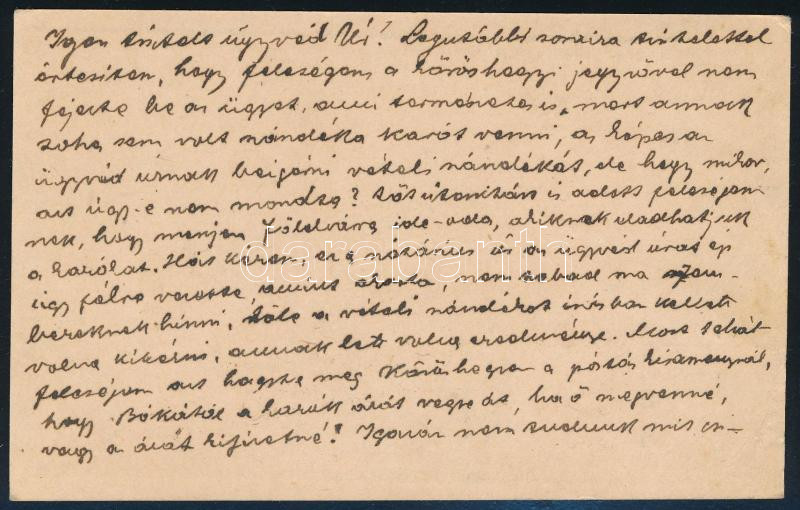 Igen tisztelt ügyvéd Úr! Legutóbbi soraira tisztelettel
értesitem, hogy feleségem a kőröshegyi jegyzővel nem
fejezte be az ügyet, ami természetes is, mert annak
soha sem volt szándéka karót venni, az képes az
ügyvéd úrnak beigérni vételi szándékát, de hogy mikor,
azt ugy-e nem mondta? Sőt útasitást is adott feleségem-
nek, hogy menjen Földvárra ide-oda, akiknek eladhatjuk
a karókat. Hát kérem, ez a notárius úr az ügyvéd urat ép
úgy félre vezette, amint
nem szabad ma em-
bereknek hinni, tőle a vételi szándékot irásban kellett
volna kikérni, annak lett volna eredménye. Most tehát
feleségem azt hagyta meg Kőröshegyen a postás kisasszonynál,
hogy Bókától a karók árát vegye át, ha ő megvenné,
vagy a árát kifizetné! Igazán nem tudunk mit csi-
darabanth